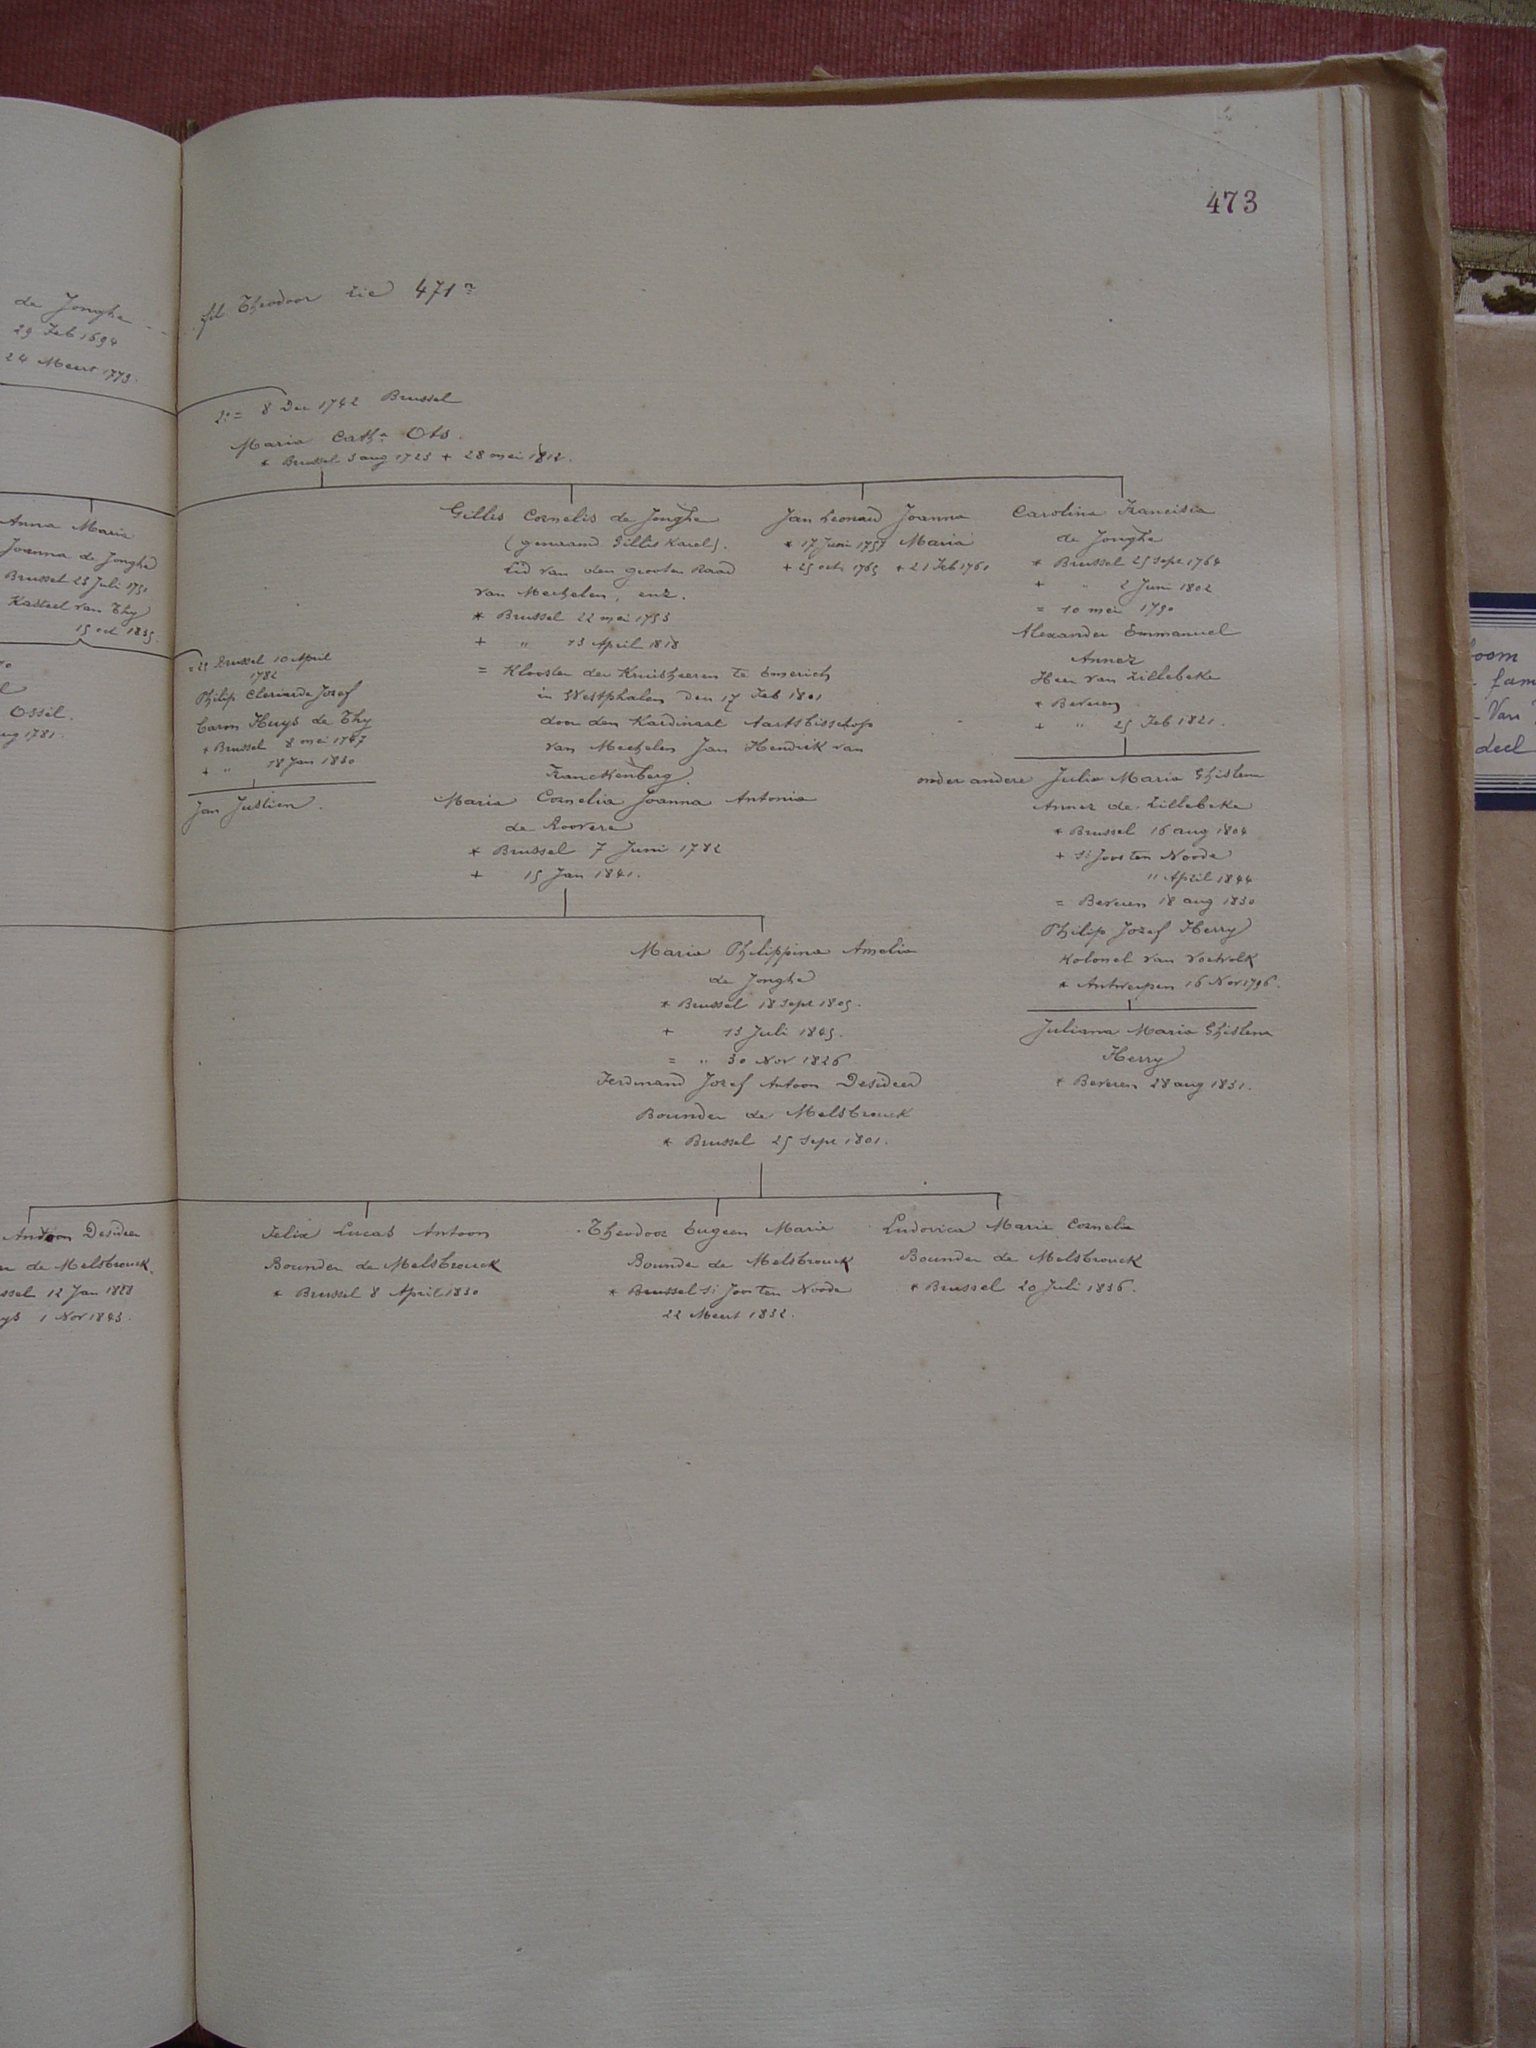 473
de Jonghe
29 Feb 1694
24 Meert 1773.
fil Theodoor zie 471
2.= 8 Dec 1742 Brussel
Maria Catha Ots.
* Brussel 3 aug 1723 + 28 mei 1812.
Anna Maria
Joanna de Jonghe
Brussel 23 Juli 1751
Kasteel van Thy
15 oct 1835.
= Brussel 10 April
1782
Philip Cleriarde Jozef
baron Huys de Thy
* Brussel 8 mei 1747
+ " 18 Jan 1830
Jan Justien.
Ossel.
aug 1781.
Gillis Cornelis de Jonghe
(genaamd Gillis Karel).
Lid van den grooten Raad
van Mechelen, enz.
* Brussel 22 mei 1753
+ " 13 April 1818
= Klooster der Kruisheeren te Emerich
in Westphalen den 17 Feb 1801
door den Kardinaal Aartsbisschop
van Mechelen Jan Hendrik van
Franckenberg.
Maria Cornelia Joanna Antonia
de Roovere
* Brussel 7 Juni 1782
+ 15 Jan 1841.
Jan Leonard
* 17 Juni 1757
+ 25 oct 1765
Joanna
Maria
+ 21 Feb 1761
Carolina Francisca
de Jonghe
* Brussel 25 sept 1764
+ 2 Juni 1802
= 10 mei 1790
Alexander Emmanuel
Annez
Heer van Zillebeke
* Beveren
+ " 25 Feb 1821.
onder andere Julia Maria Ghislena
Annez de Zillebeke
* Brussel 16 aug 1804
+ St Joos ten Noode
" April 1844
= Beveren 18 aug 1830
Philip Jozef Herry
Kolonel van voetvolk
* Antwerpen 16 Nov 1796.
Juliana Maria Ghislena
Herry
* Beveren 28 aug 1831.
Maria Philippina Amelia
de Jonghe
* Brussel 18 sept 1805.
+ 13 Juli 1845.
= " 30 Nov 1826
Ferdinand Jozef Antoon Desideer
Bounder de Melsbrouck
* Brussel 25 sept 1801.
Antoon Desideer
de Melsbrouck.
12 Jan 1828
1 Nov 1843.
Felix Lucas Antoon
Bounder de Melsbrouck
* Brussel 8 April 1830
Theodoor Eugeen Marie
Bounder de Melsbrouck
* Brussel St Joos ten Noode
22 Meert 1832.
Ludovica Maria Cornelia
Bounder de Melsbrouck
* Brussel 20 Juli 1836.
boom
fam
Van
deel